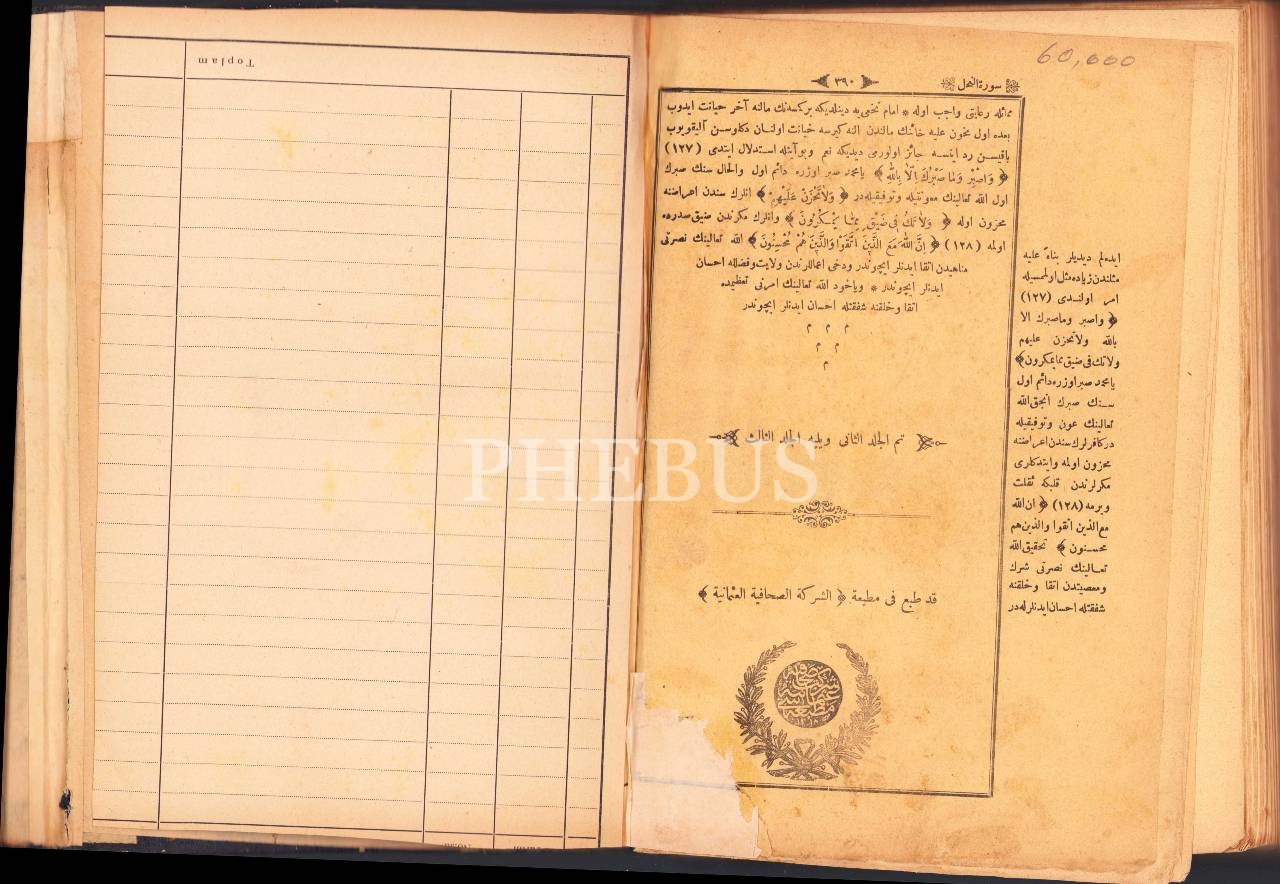 Toplam
60,000
سورة النحل
٣٩٠
مماثله رعايتی واجب اوله * امام نخعی‌يه دينلديكه بر كمسه‌نك مالنه آخر خيانت ايدوب
بعده اول مخون عليه خائنك مالندن النه كيرسه خيانت اولنان دكلوسن آليقويوب
باقيسن رد ايتسه جائز اولورمی ديديكه نعم وبو آيتله استدلال ايتدی (١٢٧)
﴿ وَاصْبِرْ وَمَا صَبْرُكَ اِلَّا بِاللّٰهِ ﴾ يا محمد صبر اوزره دائم اول والحال سنك صبرك
اول الله تعالينك معونتيله وتوفيقيله‌در ﴿ وَلَا تَحْزَنْ عَلَيْهِمْ ﴾ انلرك سندن اعراضنه
محزون اوله ﴿ وَلَا تَكُ فِى ضَيْقٍ مِمَّا يَمْكُرُونَ ﴾ وانلرك مكرندن ضيق صدرده
اولمه (١٢٨) ﴿ اِنَّ اللّٰهَ مَعَ الَّذِينَ اتَّقَوْا وَالَّذِينَ هُمْ مُحْسِنُونَ ﴾ الله تعالينك نصرتی
مناهيدن اتقا ايدنلر ايچوندر ودخی اعماللرندن ولايت وفضلله احسان
ايدنلر ايچوندر * وياخود الله تعالينك امرنی تعظيمده
اتقا وخلقنه شفقتله احسان ايدنلر ايچوندر
م م م
م م
م
تم الجلد الثانی ويليه الجلد الثالث
قد طبع فی مطبعة ﴿ الشركة الصحافية العثمانية ﴾
ايده‌لم ديديلر بناءً عليه
مثلندن زياده مثل اولمسيله
امر اولندی (١٢٧)
﴿ واصبر وماصبرك الا
بالله ولاتحزن عليهم
ولاتك فی ضيق مما يمكرون ﴾
يا محمد صبر اوزره دائم اول
سنك صبرك انجق الله
تعالينك عون وتوفيقيله
در كافرلرك سندن اعراضنه
محزون اولمه وايتدكلری
مكرلرندن قلبكه ثقلت
ويرمه (١٢٨) ﴿ ان الله
مع الذين اتقوا والذين هم
محسنون ﴾ تحقيق الله
تعالينك نصرتی شرك
ومعصيتدن اتقا وخلقنه
شفقتله احسان ايدنلرله‌در
PHEBUS